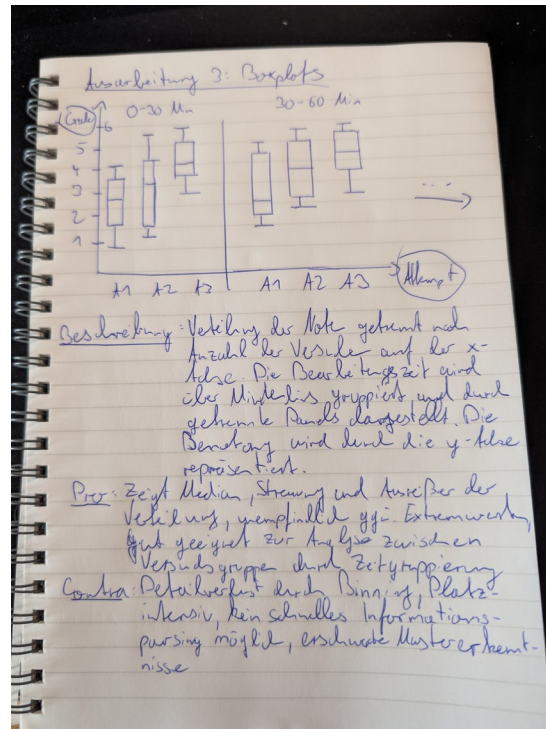 Ausarbeitung 3: Boxplots
0-30 Min 30-60 Min
Grade
6
5
4
3
2
1
...
A1 A2 A3 A1 A2 A3 Attempt
Beschreibung: Verteilung der Note getrennt nach
Anzahl der Versuche auf der x-
Achse. Die Bearbeitungszeit wird
über Minuten gruppiert und durch
getrennte Panels dargestellt. Die
Benotung wird durch die y-Achse
repräsentiert.
Pro: Zeigt Median, Streuung und Ausreißer der
Verteilung, unempfindlich ggü. Extremwerten,
gut geeignet zur Analyse zwischen
Versuchsgruppen durch Zeitgruppierung
Contra: Detailverlust durch Binning, Platz-
intensiv, kein schnelles Informations-
parsing möglich, erschwerte Mustererkennt-
nisse